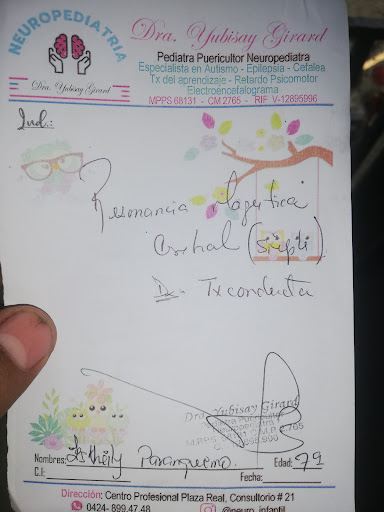 NEUROPEDIATRIA
Dra. Yubisay Girard
Dra. Yubisay Girard
Pediatra Puericultor Neuropediatra
Especialista en Autismo - Epilepsia - Cefalea
Tx del aprendizaje - Retardo Psicomotor
Electroencefalograma
MPPS 68131 - CM 2765 - RIF V-12895996
Ind.:
Resonancia Magnética
Cerebral (simple)
Dx. Tx conducta
Dra. Yubisay Girard
Pediatra Puericultor
Neuropediatra
Nombres: Paranqueno. Edad: 7a
C.I.: Fecha:
Dirección: Centro Profesional Plaza Real, Consultorio # 21
0424- 899.47.48 @neuro_infantil